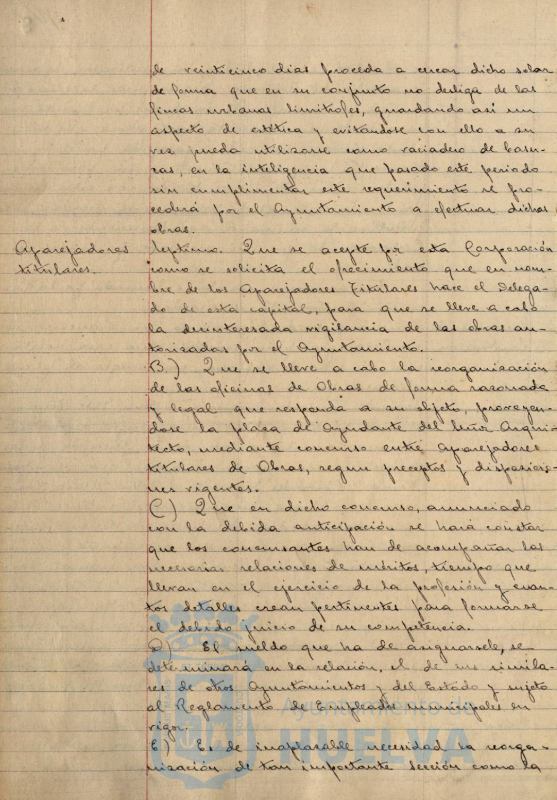 de veinticinco dias proceda a cercar dicho solar
de forma que en su conjunto no desdiga de las
fincas urbanas limitrofes, guardando así un
aspecto de estética y evitándose con ello a su
vez pueda utilizarse como vaciadero de basu-
ras, en la inteligencia que pasado este periodo
sin cumplimentar este requerimiento se pro-
cederá por el Ayuntamiento a efectuar dichas
obras.
Aparejadores
titulares.
Septimo. Que se acepte por esta Corporación
como se solicita el ofrecimiento que en nom-
bre de los Aparejadores Titulares hace el Delega-
do de esta capital, para que se lleve a cabo
la desinteresada vigilancia de las obras au-
torizadas por el Ayuntamiento.
B.) Que se lleve a cabo la reorganización
de las oficinas de Obras de forma razonada
y legal que responda a su objeto, proveyen-
dose la plaza de Ayudante del Señor Arqui-
tecto, mediante concurso entre Aparejadores
titulares de Obras, segun preceptos y disposicio-
nes vigentes.
C) Que en dicho concurso, anunciado
con la debida anticipación se hará constar
que los concursantes han de acompañar las
necesarias relaciones de méritos, tiempo que
llevan en el ejercicio de la profesión y cuan-
tos detalles crean pertinentes para formarse
el debido juicio de su competencia.
D) El sueldo que ha de asignarsele, se
determinará en la relación, el de sus simila-
res de otros Ayuntamientos y del Estado y sujeto
al Reglamento de Empleados municipales en
vigor.
E) Es de inaplazable necesidad la reorga-
nización de tan importante sección como la
Ayuntamiento de
HUELVA